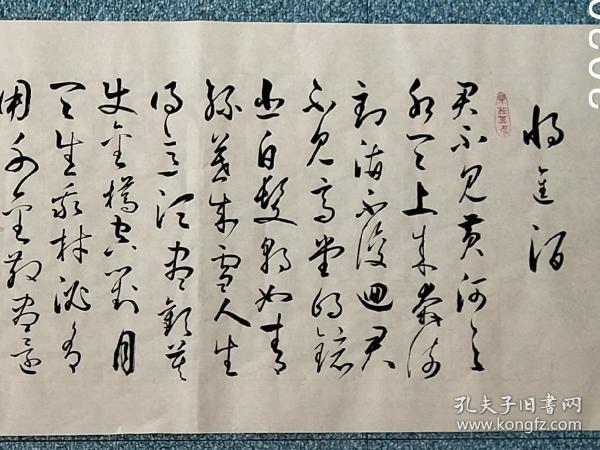 將進酒
君不見黃河之
水天上來奔流
到海不復迴君
不見高堂明鏡
悲白髮朝如青
絲暮成雪人生
得意須盡歡莫
使金樽空對月
天生我材必有
用千金散盡還
孔夫子旧书网
www.kongfz.com